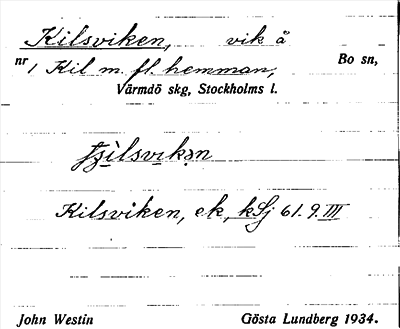 Kilsviken, vik å
nr 1 Kil m. fl. hemman, Bo sn,
Värmdö skg, Stockholms l.
Kilsviken, ek, kSj 61.9.III
John Westin Gösta Lundberg 1934.